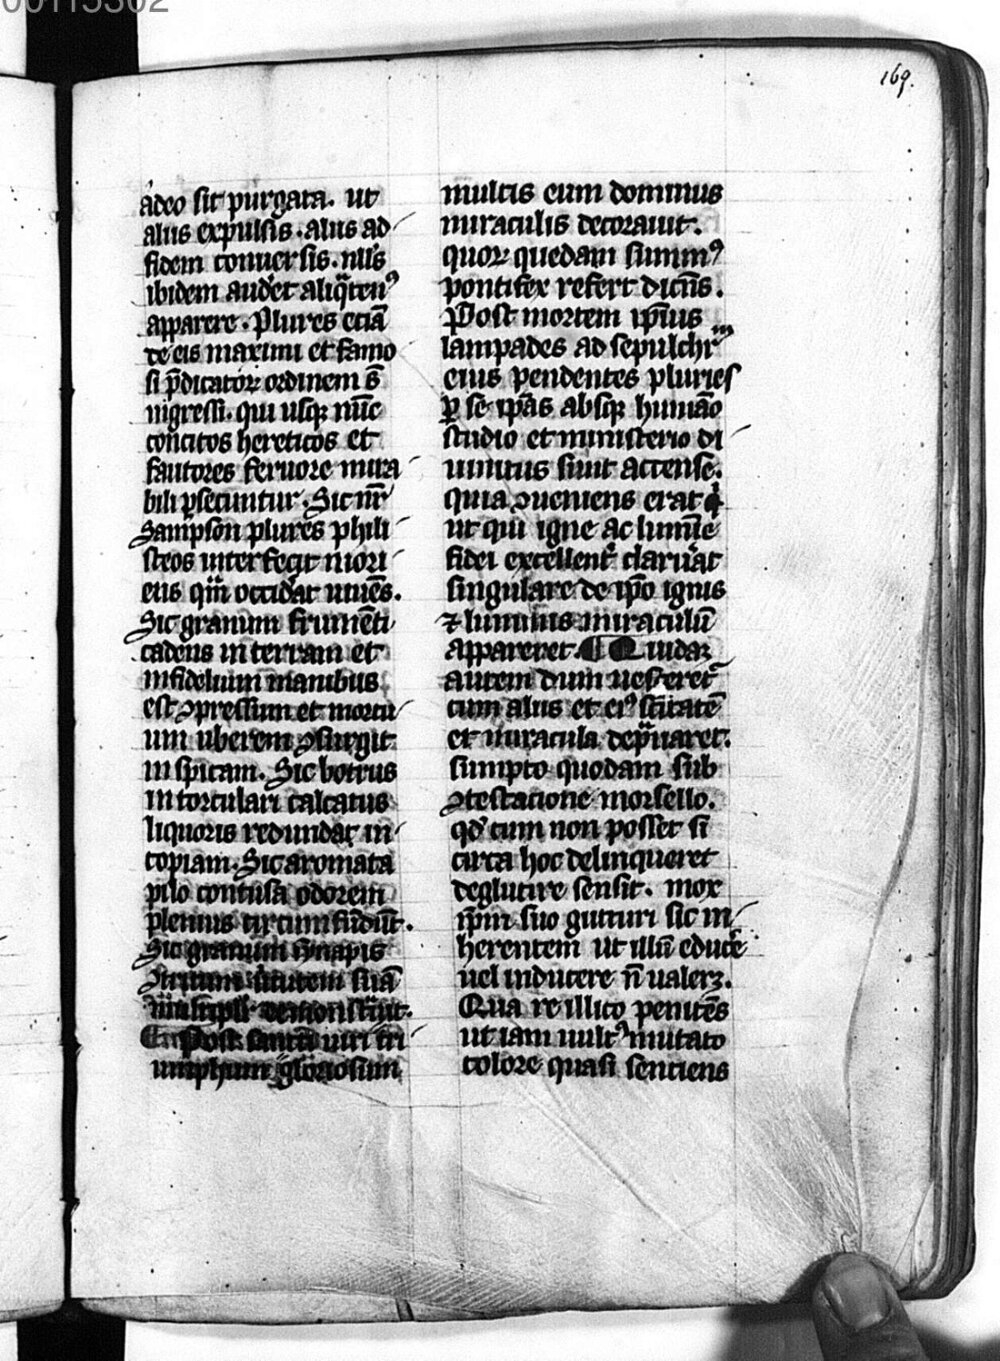 00115302
169.
adeo sit purgata. ut
aliis expulsis. aliis ad
fidem conuersis. nll's
ibidem audet aliq̃tenꝰ
apparere. Plures eciã
de eis maximi et famo
si p̃dicatoꝝ ordinem s̃
ingressi. qui usqꝫ nũc
concitos hereticos et
fautores feruore mira
bili ꝑsecuntur. Sic nr̃
Sampson plures phili
steos interfecit mori
ens qm̃ occidat uiuẽs.
Sic granum frumẽti
cadens in terram et
infidelium manibus
est ꝯpressum et mortu
um uberem ꝯsurgit
in spicam. Sic botrus
in torculari calcatus
liquoris redundat in
copiam. Sic aromata
pilo contusa odorem
plenius circumfũdũt.
Sic granum synapis
ꝯtritum uirtutem suã
demonstrat.
Post sancti uiri tri
umphum gloriosum
multis eum dominus
miraculis decorauit.
quoꝝ quedam summꝰ
pontifex refert dicẽs.
Post mortem ip̃ius
lampades ad sepulchrũ
eius pendentes pluries
ꝑ se ip̃as absqꝫ humão
studio et ministerio di
uinitus sunt accense.
quia ꝯueniens erat
ut qui igne ac lumĩe
fidei excellent̃ claruãt
singulare de ip̃o ignis
⁊ luminis miraculũ
appareret. ¶ Quidaꝫ
autem dum uesceret̃
cum aliis et eiꝰ sc̃itatẽ
et miracula dep̃uaret.
sumpto quodam sub
ꝯtestacione morsello.
qd̃ cum non posset si
circa hoc delinqueret
deglutire sensit. mox
ip̃m suo guturi sic in
herentem ut illũ educ̃e
uel inducere ñ ualeret.
Qua re illico penitẽs
ut iam uultꝰ mutato
colore quasi senciens